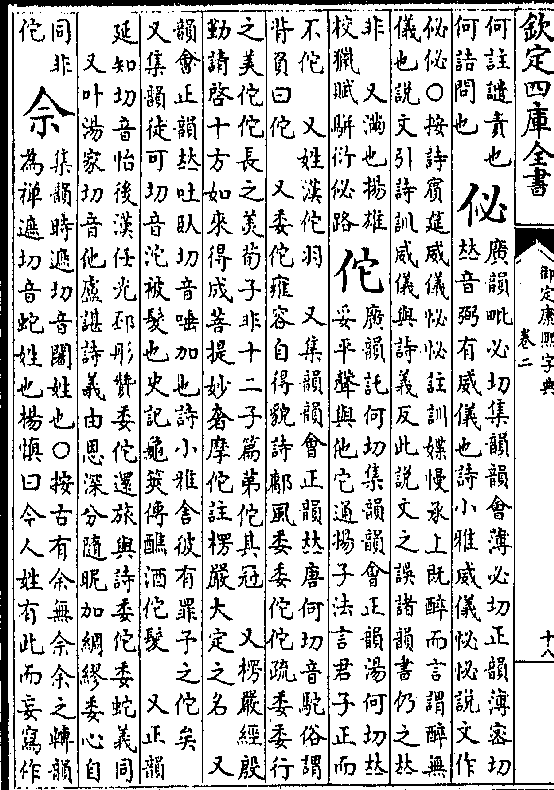 欽定四庫全書
御定康熙字典
卷二
十八
何註譴責也
何詰問也
佖
廣韻毗必切集韻韻會薄必切正韻薄密切
𠀤音弼有威儀也詩小雅威儀怭怭說文作
佖佖○按詩賓筵威儀怭怭註訓媟慢承上既醉而言謂醉無
儀也說文引詩訓威儀與詩義反此說文之誤諸韻書仍之𠀤
非 又滿也揚雄
校獵賦駢衍佖路
佗
廣韻託何切集韻韻會正韻湯何切𠀤
妥平聲與他它通揚子法言君子正而
不佗 又姓漢佗羽 又集韻韻會正韻𠀤唐何切音駝俗謂
背負曰佗 又委佗雍容自得貌詩鄘風委委佗佗疏委委行
之美佗佗長之美荀子非十二子篇弟佗其冠 又楞嚴經殷
勤請啓十方如來得成菩提妙奢摩佗註楞嚴大定之名 又
韻會正韻𠀤吐臥切音唾加也詩小雅舍彼有罪予之佗矣
又集韻徒可切音沱被髮也史記龜筴傳醮酒佗髮 又正韻
延知切音怡後漢任光邳彤贊委佗還旅與詩委佗委蛇義同
又叶湯家切音他盧諶詩義由恩深分隨昵加綢繆委心自
同非
佗
佘
集韻時遮切音闍姓也○按古有余無佘余之轉韻
為禪遮切音蛇姓也楊愼曰今人姓有此而妄寫作